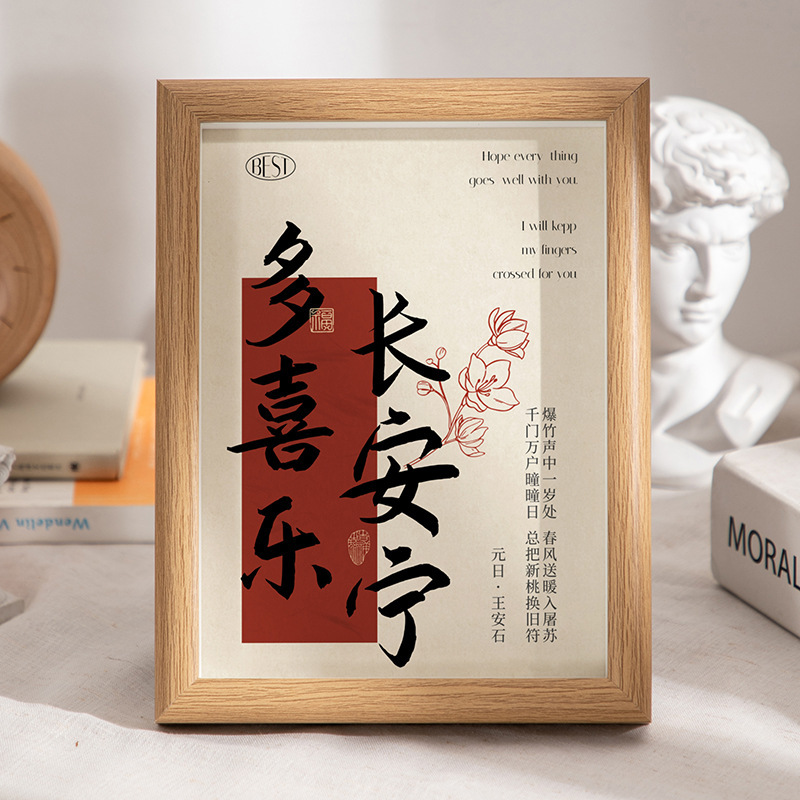 BEST
Hope every thing
goes well with you.
I will kepp
my fingers
crossed for you
多喜乐
长安宁
福
爆竹声中一岁处 春风送暖入屠苏
千门万户曈曈日 总把新桃换旧符
元日·王安石
Wendelin V
MORAL